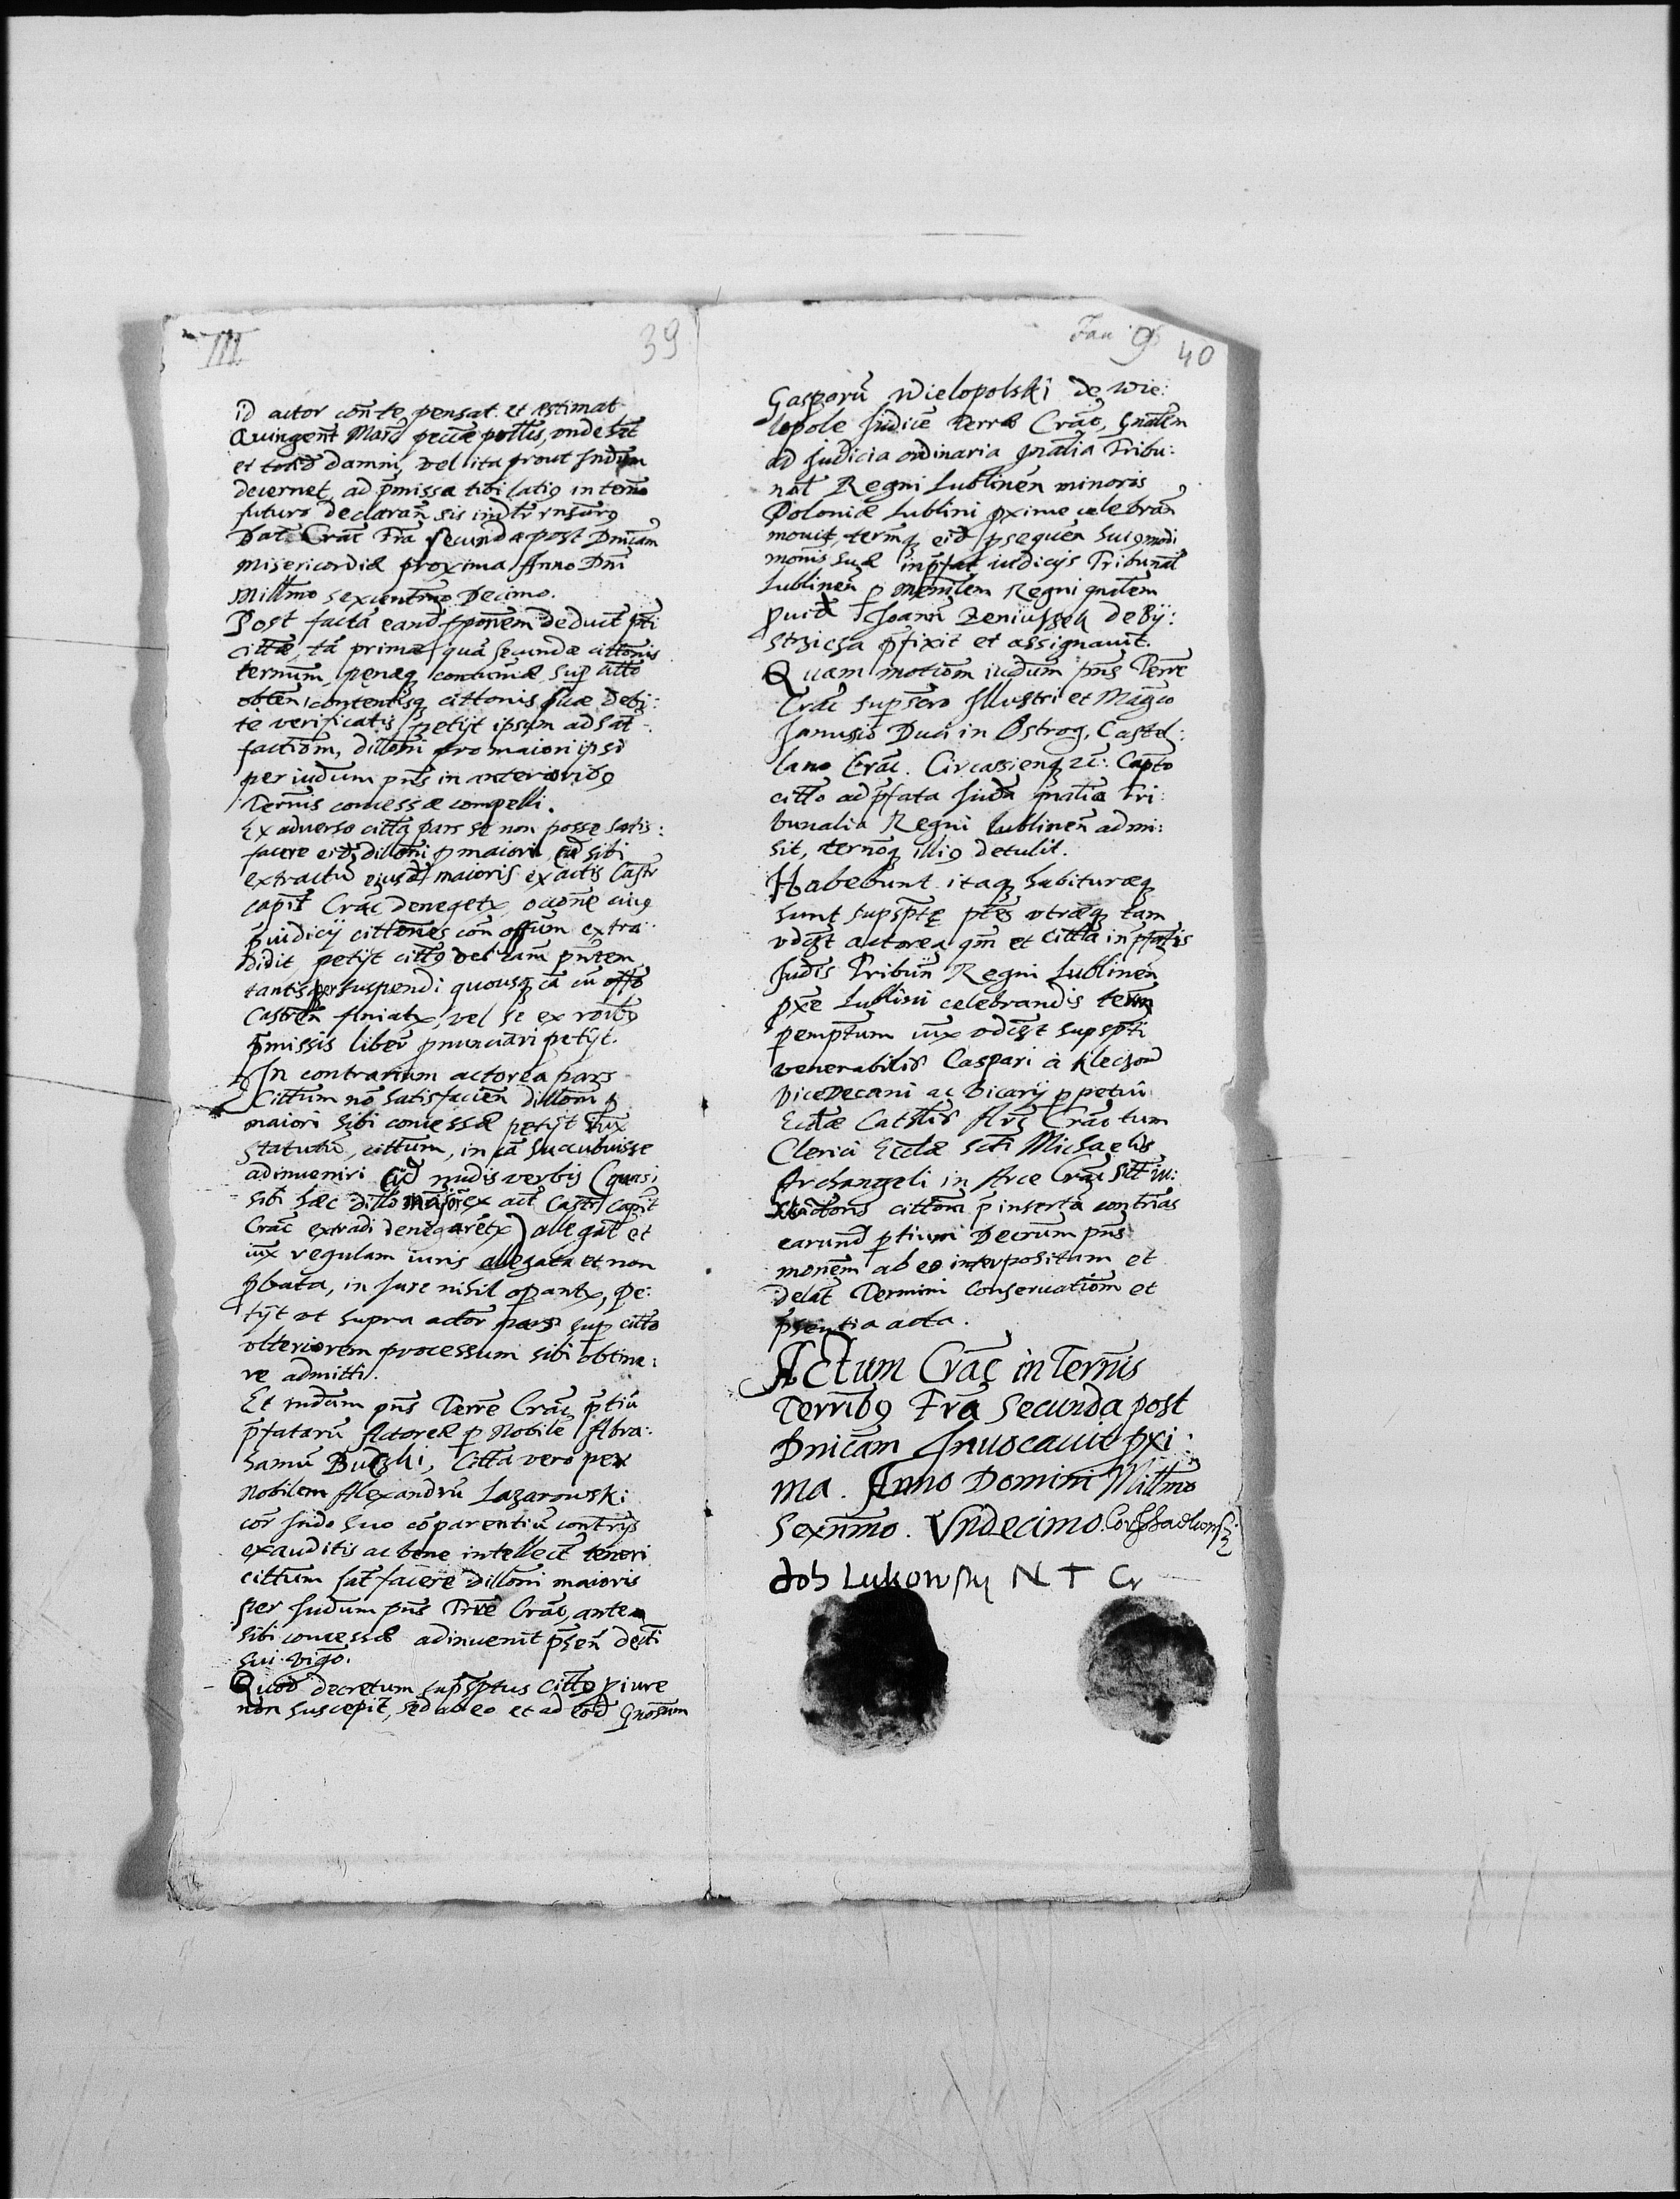 III 39
id actor con̄ te pensat et estimat
Quingent Marc̄ pecūæ pollis, unde
et damni, vel ita prout Judm
decernet, ad p̄missa tibi latiꝯ in termō
futuro declaran̄ sis indr̄ rnsurꝯ
Dat Crac̄ Fr̄a Secunda post Dnīcam
Misericordiæ proxima Anno Dnī
Mill̄mo sexcentm̄o Decimo.
Post factā eand deduct p̄nti
citt̄æ, tā primæ quā secundæ citt̄onis
term̄um, penæq̨ contumæ sup citt̄o
obten̄, contentisq̨ citt̄onis suæ debi:
te verificatis petijt ipsum ad sat
factiōm, dill̄oni pro maiori ipsi
per iudm̄ pn̄s in anterioribꝯ
Term̄is concessæ compelli.
Ex adverso citt̄a pars se non posse satis:
facere eid, dill̄oni p maiori, eā sibi
extractū eiusd maioris ex actis Castr
capit̄ Crac̄ denegetr, occ̄one cuiꝯ
p̄iudicij citt̄ones con̄ off̄um extra:
didit, petijt citt̄ꝯ vel cām p̄ntem
tantisper suspendi quousq̨ cā cū off̄o
Castren̄ finiatr, vel se ex roībꝯ
p̄missis liberū p̄nunciari petijt.
In contrarium actorea pars
Citt̄um nō satisfacien̄ dill̄oni p
maiori sibi concessæ petijt iux
statutū, citt̄um, in cā succubuisse
adinveniri Cūd nudis verbis (quasi
sibi hæc dill̄o maior ex act Castr Capit
Crac̄ extradi denegaretr) allegat et
iux regulam iuris allegata et non
p̄bata, in Jure nihil operantr, pe:
tijt ut supra actor pars sup citt̄o
ulteriorem processum sibi obtine:
re admitti.
Et Judm̄ pn̄s Terrē Crac̄ ptiū
p̄fatarū Actoreæ p Nobilē Abra:
hamū Buczki, Citt̄a vero per
Nobilem Alexandrū Lazarowski
cor̄ Judo suo cōparentiū contrijs
exauditis ac bene intellect teneri
citt̄um satfacere dill̄oni maioris
per Judm̄ pn̄s Trrē Crac̄, antea
sibi concessæ adinvenit p̄sen̄ decti
sui vigo.
Quod decretum sup̄sptus Citt̄ꝯ p iure
non suscepit, sed ab eo et ad eod Gnosum
Jan 9 40
Gasparū Wielopolski de Wie:
lopole Judicē Terræ Crac̄, Gnalem
ad Judicia ordinaria gnalia Tribu:
nal Regni Lublinen̄ minoris
Poloniæ Lublini pxime celebran̄
movit, termq̨ eid psequen̄ huiꝯmodi
mon̄is suæ in p̄fat iudicijs Tribunal
Lublinen̄ p Mem̄lem Regni gnalem
pvid Joann̄ Zeniussek de Bÿ:
strzicha p̄fixit et assignavit.
Quam motiōm iudm̄ pn̄s Terrē
Crac̄ sup̄sero Illustri et Maḡco
Janussio Duci in Ostrog, Castel:
lano Crac̄. Circassien̄q̨ zc̄: Capto
citt̄o ad p̄fata Juda gnalia Tri:
bunalia Regni Lublinen̄ admi:
sit, term̄oq̨ illiꝯ detulit.
Habebunt itaq̨ habituræq̨
sunt sup̄sptę ptes utræq̨ tam
vdczt actorea qm̄ et citt̄a in p̄fatis
Judīs Tribun̄ Regni Lublinen̄
pxē Lublini celebrandis term̄
peremptum iux vdczt sup̄spti
venerabilis Caspari à Kleczow
Vicedecani ac Vicarij ppetui
Ecclæ Cathlis Arcis Crac̄ tum
Clerici Ecclæ Scti Michaelis
Archangeli in Arce Crac̄ sitt in:
citt̄om p̄insertā contr̄ias
earund ptium Decrum pn̄s
monem ab eo interpositam et
delat Termini Conservatiōm et
p̄sentia acta.
Actum Crac̄ in Term̄is
Terribꝯ Fr̄a Secunda post
Dnīcam Invocavit pxi:
ma. Anno Domini Mill̄mo
Sexnm̄o. Undecimo.
Joh Lukowsky N T Cr